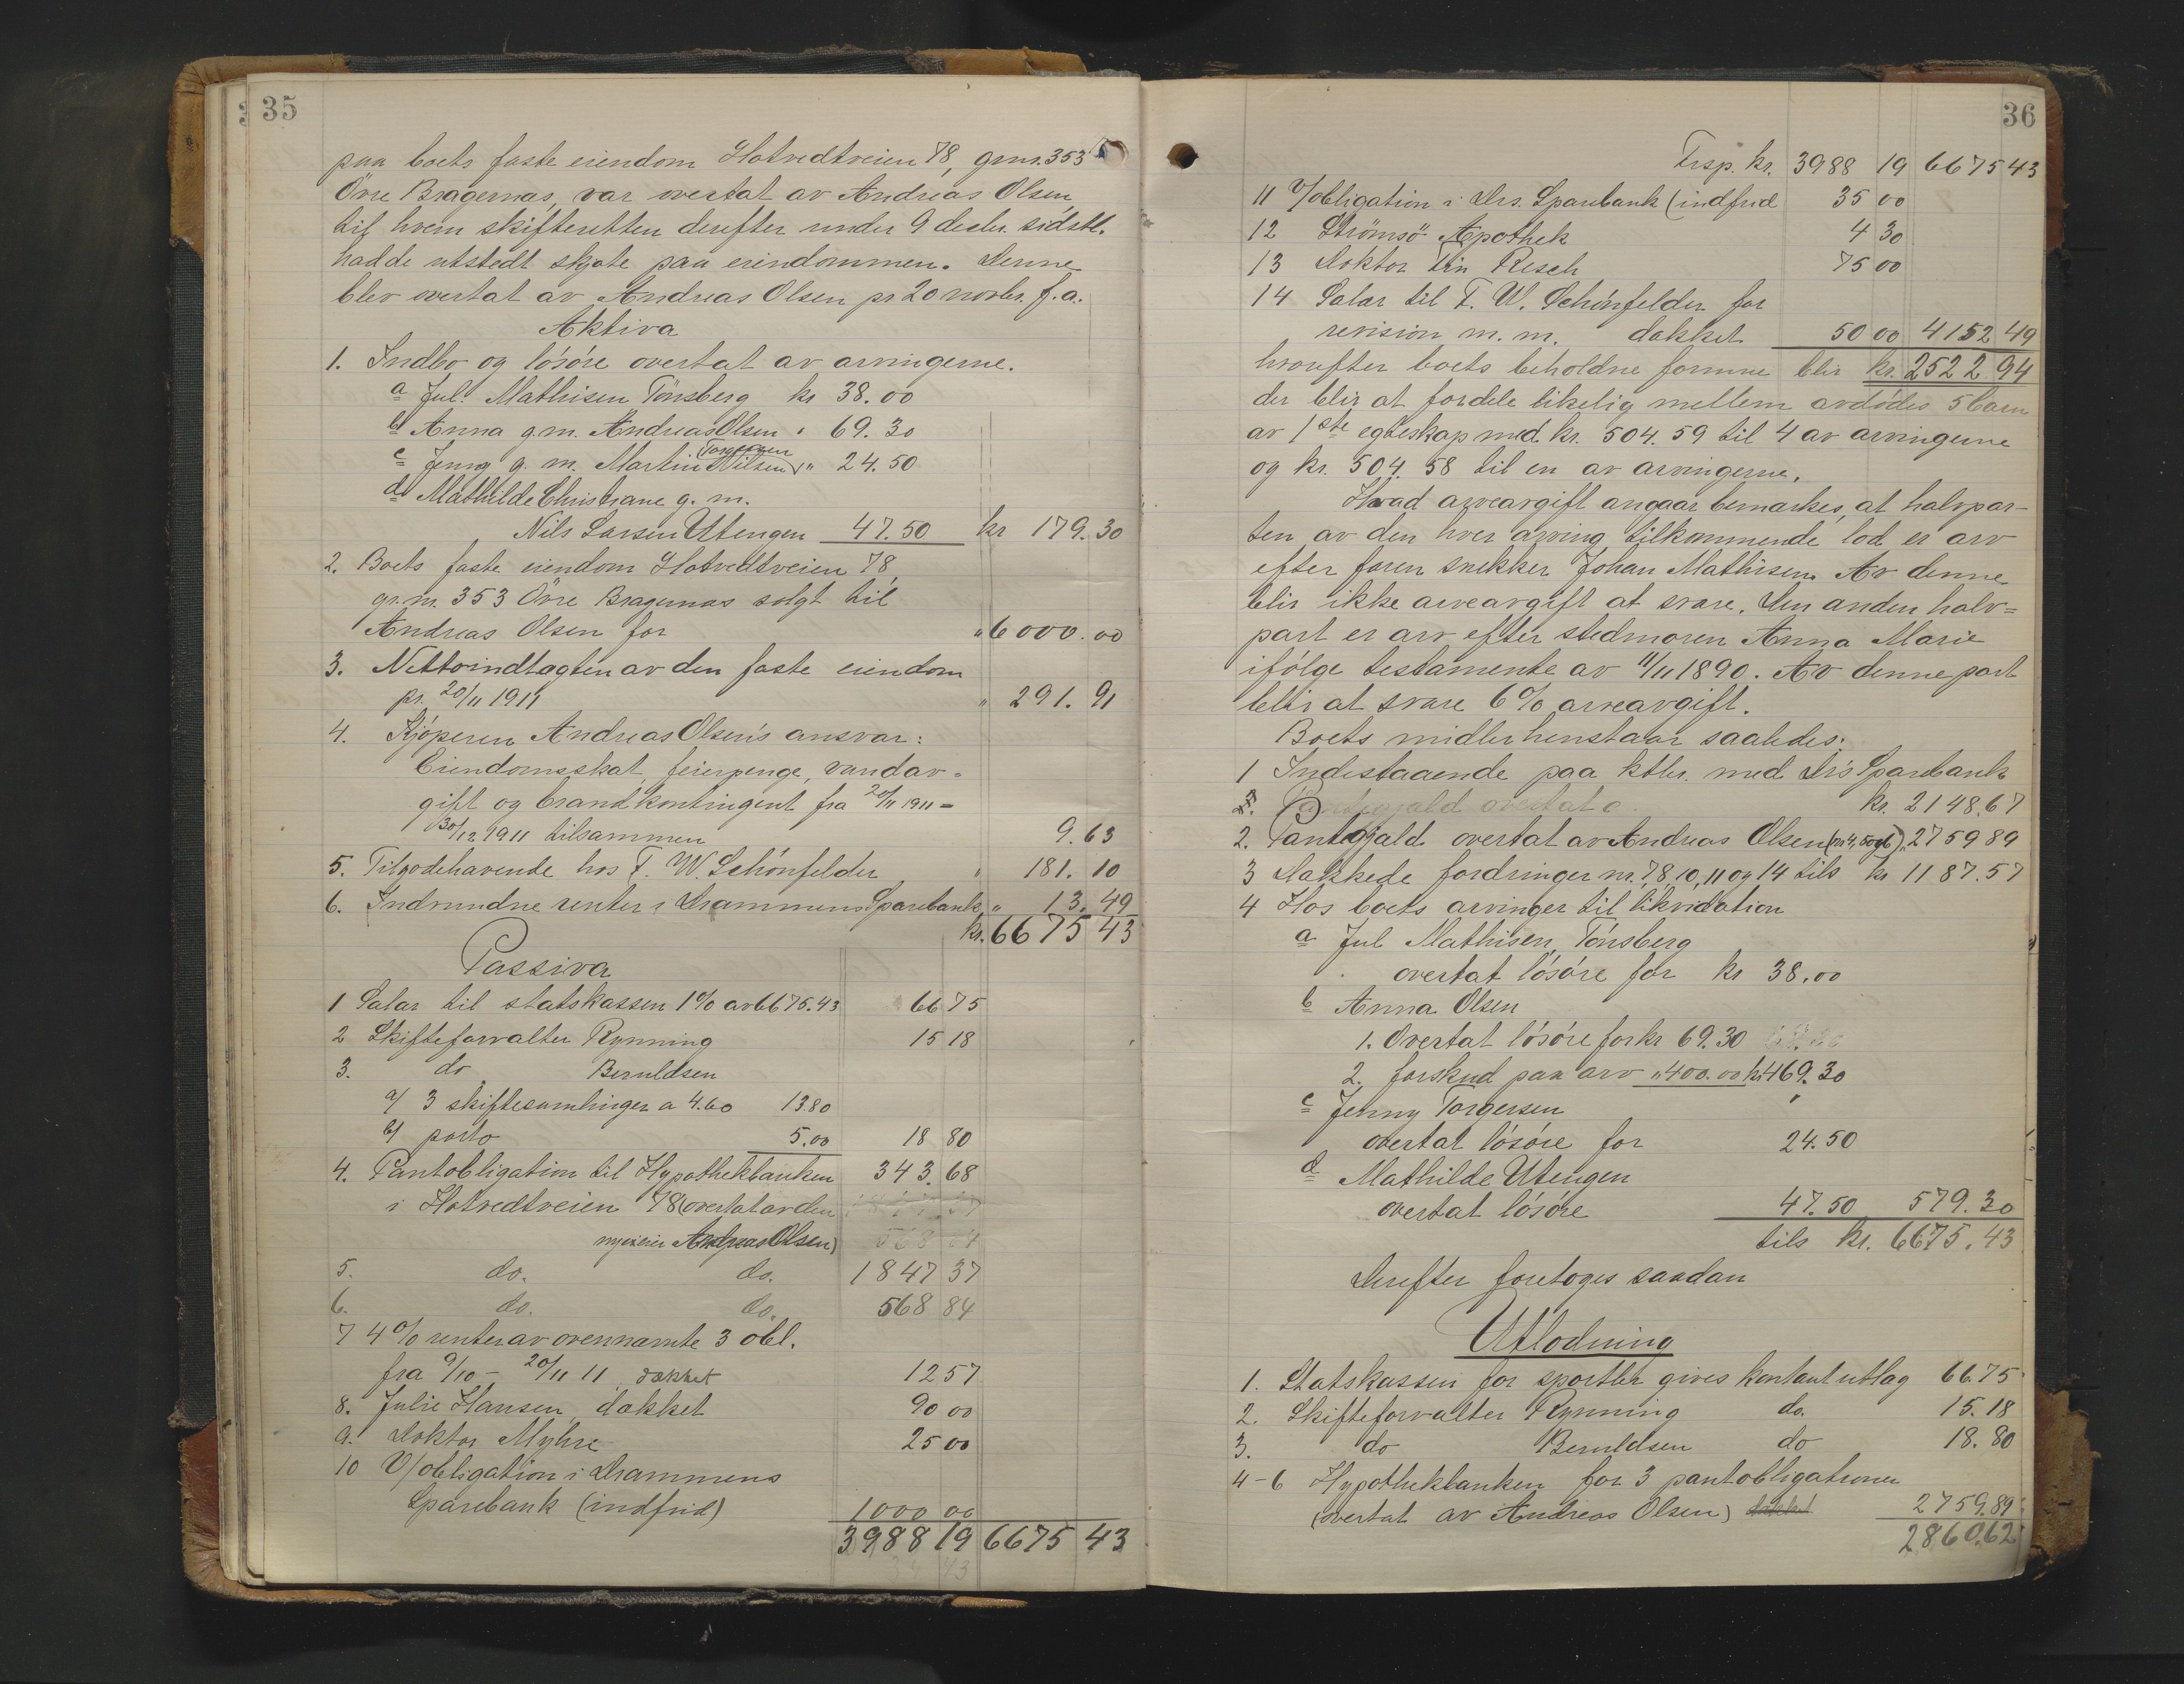 35
paa boets faste eiendom Hotvedtveien 78, grnr. 353
Övre Bragernæs, var overtat av Andreas Olsen,
til hvem skifteretten derefter under 9 decbr. sidstl.
hadde utstedt skjøte paa eiendommen. Denne
blev overtat av Andreas Olsen pr 20 novbr. f.a.
Aktiva
1. Indbo og lösöre overtat av arvingerne.
a Jul. Mathisen Tönsberg kr 38.00
b Anna g.m. Andreas Olsen " 69.30
Torgersen
c Jenny g. m. Martin Nilsen " 24.50
d Mathilde Christiane g. m.
Nils Larsen Utengen 47.50 kr 179.30
2. Boets faste eiendom Hotvedtveien 78,
gr.nr. 353 Övre Bragernæs solgt til
Andreas Olsen for " 6000.00
3. Nettoindtægten av den faste eiendom
pr. 20/11 1911 " 291.91
4. Kjöperen Andreas Olsen's ansvar:
Eiendomsskat, feierpenge, vandav=
gift og brandkontingent fra 20/11 1911 -
30/12 1911 tilsammen 9.63
5. Tilgodehavende hos F. W. Schönfelder " 181.10
6. Indvundne renter i Drammens Sparebank " 13.49
kr. 6675 43
Passiva
1 Salær til statskassen 1% av 6675.43 66 75
2 Skifteforvalter Rynning 15 18
3. do Beruldsen
a/ 3 skiftesamlinger a 4.60 13.80
b/ porto 5.00 18 80
4. Pantobligation til Hypothekbanken 343.68
i Hotvedtveien 78 (overtat av den
nye eier Andreas Olsen)
5. do. do. 1847 37
6. do. do. 568 84
7 4% renter av ovennævnte 3 obl.
fra 9/10 - 20/11 11 dækket 12 57
8. Julie Hansen, dækket 90 00
9. Doktor Myhre 25 00
10 V/obligation i Drammens
Sparebank (indfriet) 1000 00
3988 19 6675 43
36
Trsp. kr. 3988 19 6675 43
11 V/obligation i Drs. Sparebank (indfriet 35 00
12 Strömsö Apothek 4 30
13 Doktor Resch 75 00
14 Salær til F. W. Schönfelder for
revision m. m. dækket 50 00 4152 49
hvorefter boets beholdne formue blir kr. 2522.94
der blir at fordele likelig mellem avdödes 5 barn
av 1ste egteskap med kr. 504.59 til 4 av arvingerne
og kr. 504.58 til en av arvingerne.
Hvad arveavgift angaar bemærkes, at halvpar-
ten av den hver arving tilkommende lod er arv
efter faren snekker Johan Mathisen. Av denne
blir ikke arveavgift at svare. Den anden halv=
part er arv efter stedmoren Anna Marie
ifölge testamente av 11/11 1890. Av denne part
blir at svare 6% arveavgift.
Boets midler henstaar saaledes:
1 Indestaaende paa ktbr. med Dr's Sparebank
kr. 2148.67
2. Pantegjæld overtat av Andreas Olsen (nr 4, 5 og 6) " 2759 89
3 Dækkede fordringer nr. 7, 8 10, 11 og 14 tils kr 1187.57
4 Hos boets arvinger til likvidation
a Jul Mathisen, Tönsberg
overtat lösöre for kr 38.00
b Anna Olsen
1. Overtat lösöre for kr 69.30
2. forskud paa arv " 400.00 kr 469.30
c Jenny Torgersen
overtat lösöre for 24.50
d Mathilde Utengen
overtat lösöre 47.50 579.30
tils kr. 6675.43
Derefter foretoges saadan
Utlodning
1. Statskassen for sportler gives kontant utlæg 66.75
2. Skifteforvalter Rynning do. 15.18
3. do Beruldsen do 18.80
4-6 Hypothekbanken for 3 pantobligationer
(overtat av Andreas Olsen) dækket 2759.89
2860.62